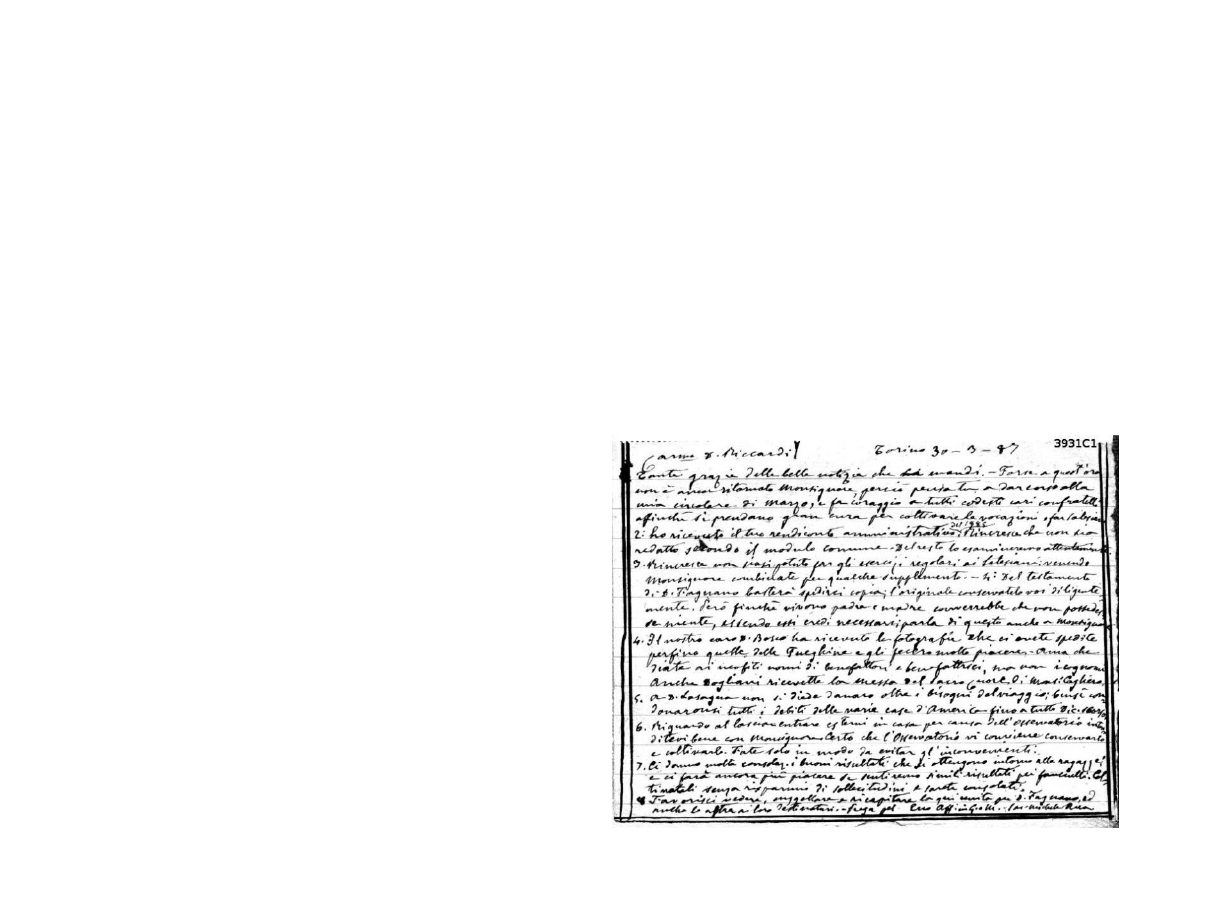 3931C1
Carmo D. Riccardi Torino 30-3-87
Tante grazie delle belle notizie che mandi. - Forse a quest'ora
non è ancor ritornato Monsignore, perciò pensa tu a dar corso alla
mia circolare di Marzo, e fa coraggio a tutti codesti cari confratelli
affinché si prendano gran cura per coltivare le vocazioni e far
2. Ho ricevuto il tuo rendiconto amministrativo del 1886. Rincresce che non sia
redatto secondo il modulo comune. Del resto lo esamineremo attentamente
3. Rincresce non siasi potuto far gli esercizi regolari ai Salesiani; venendo
Monsignore combinate per qualche supplemento. - Del testamento
di D. Fagnano basterà spedirci copia; l'originale conservatelo voi diligente-
mente. Però finché vivono padre e madre converrebbe che non possedes-
se niente, essendo essi eredi necessari; parla di questo anche a Monsignore
4. Il nostro caro D. Bosco ha ricevuto le fotografie che ci avete spedite
perfino quelle delle Fueghine e gli fecero molto piacere. - Ama che
diate ai neofiti nomi di benefattori e benefattrici, ma non i cognomi
Anche Dogliani ricevette la Messa del Sacro Cuore di Mas. Cagliero
5. A D. Lasagna non si diede danaro oltre i bisogni del viaggio; bensì con-
donaronsi tutti i debiti delle varie case d'America fino a tutto Dic.
6. Riguardo al lasciar entrare esterni in casa per causa dell'Osservatorio inten-
ditevi bene con Monsignore. Certo che l'Osservatorio vi conviene conservarlo
e coltivarlo. Fate solo in modo da evitar gl'inconvenienti.
7. Ci danno molta consolaz. i buoni risultati che si ottengono intorno alle ragazze;
e ci farà ancora più piacere se sentiremo simili risultati pei fanciulli. Col-
tivateli senza risparmio di sollecitudini e sarete consolati.
Favorisci vedere, suggellare e ricapitare la qui unita per D. Fagnano, ed
anche le altre ai loro destinatari. - Prega pel tuo Aff. in G. e M. Sac. Michele Rua